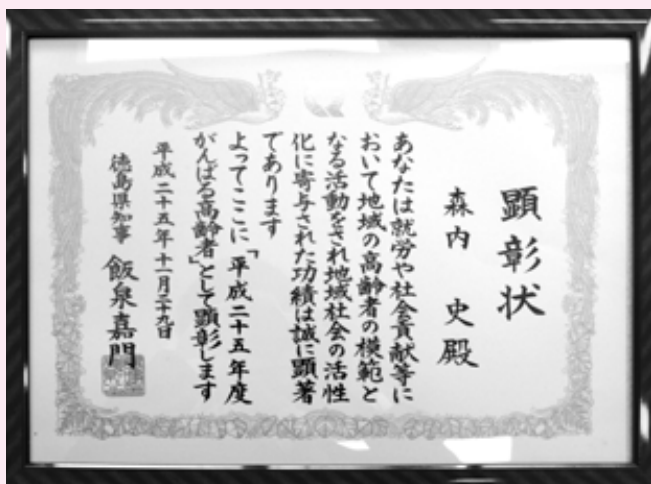 顕彰状
森内 史殿
あなたは就労や社会貢献等に
おいて地域の高齢者の模範と
なる活動をされ地域社会の活性
化に寄与された功績は誠に顕著
であります
よってここに「平成二十五年度
がんばる高齢者」として顕彰します
平成二十五年十一月二十九日
徳島県知事 飯泉嘉門